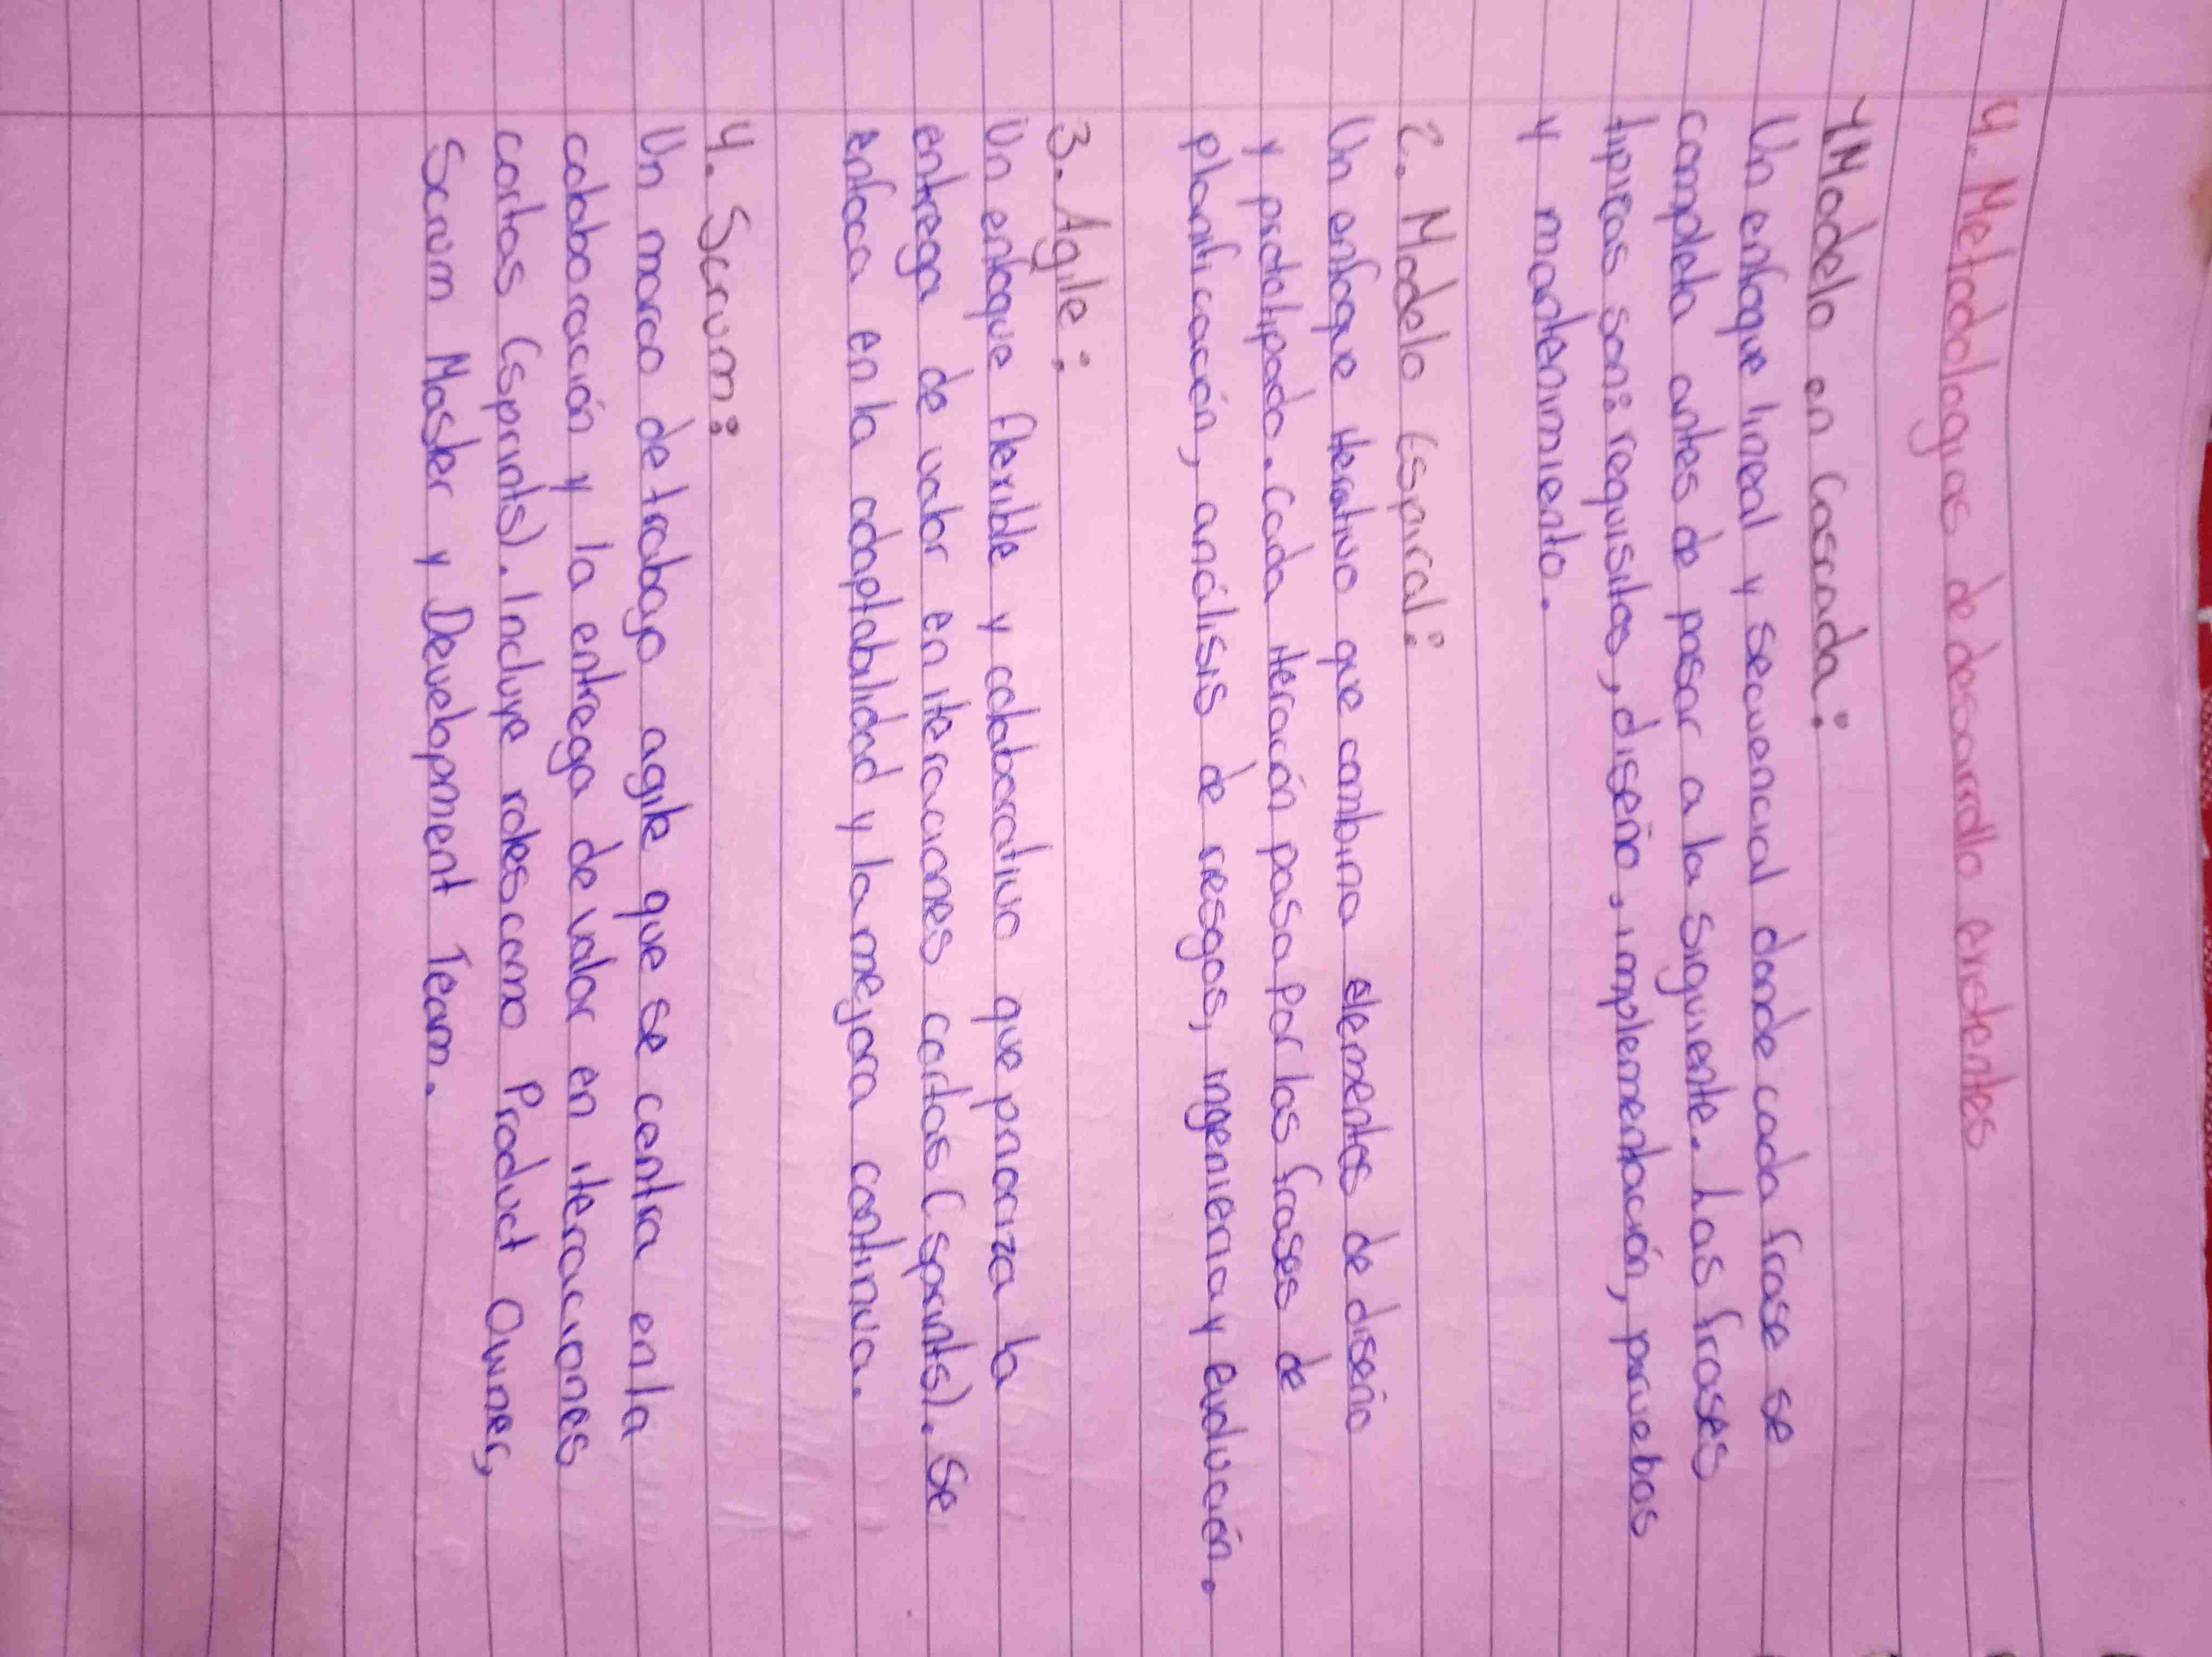 4. Metodologias de desarrollo existentes
1 Modelo en Cascada:
Un enfoque lineal y secuencial donde cada frase se
completa antes de pasar a la siguiente. Las frases
tipicas son: requisitos, diseño, implementación, pruebas
y mantenimiento.
2. Modelo Espiral:
Un enfoque iterativo que combina elementos de diseño
y prototipado. Cada iteración pasa por las frases de
planificación, análisis de riesgos, ingenieria y evaluación.
3. Agile:
Un enfoque flexible y colaborativo que prioriza la
entrega de valor en iteraciones cortas (sprints). Se
enfoca en la adaptabilidad y la mejora continua.
4. Scrum:
Un marco de trabajo agile que se centra en la
colaboración y la entrega de valor en iteraciones
cortas (sprints). Incluye roles como Product Owner,
Scrum Master y Development Team.